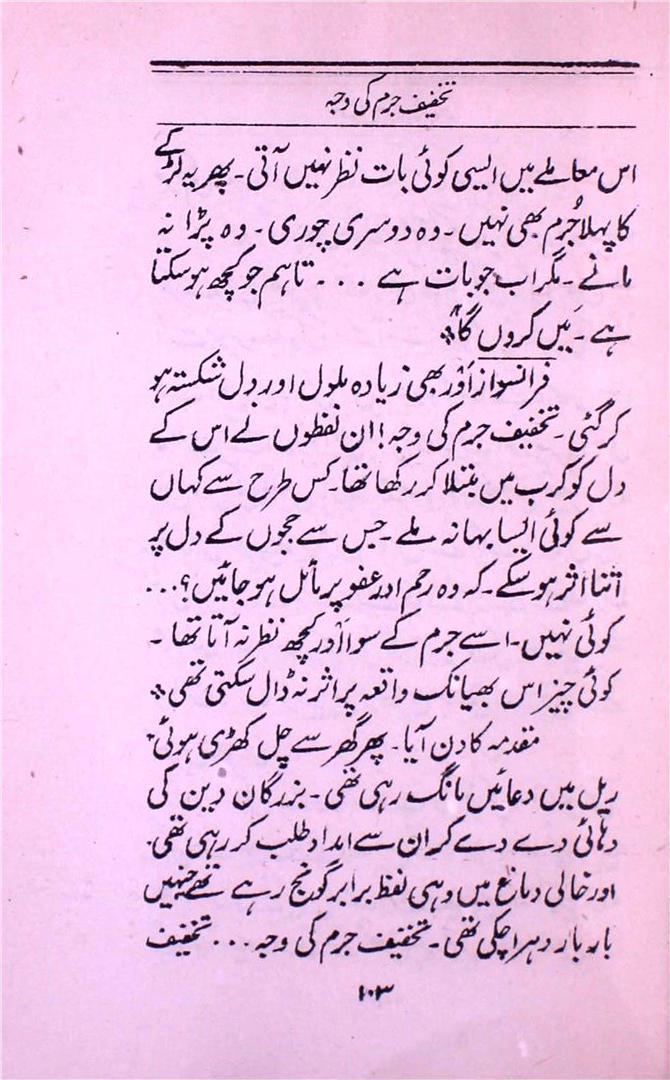 تخفیف جرم کی وجہ
اس معاملے میں ایسی کوئی بات نظر نہیں آتی۔ پھر یہ لڑکے
کا پہلا جُرم بھی نہیں۔ وہ دوسری چوری۔ وہ پڑا نہ
مانے۔ مگر اب جو بات ہے ... تاہم جو کچھ ہو سکتا
ہے۔ مَیں کروں گا"٭
فرانسواز اَور بھی زیادہ ملول اور دل شکستہ ہو
کر گئی۔ تخفیف جرم کی وجہ! ان لفظوں نے اس کے
دل کو کرب میں مبتلا کر رکھا تھا۔ کس طرح سے کہاں
سے کوئی ایسا بہانہ ملے۔ جس سے ججوں کے دل پر
اتنا اثر ہو سکے۔ کہ وہ رحم اور عفو پر مائل ہو جائیں؟...
کوئی نہیں۔ اسے جرم کے سوا اَور کچھ نظر نہ آتا تھا۔
کوئی چیز اس بھیانک واقعہ پر اثر نہ ڈال سکتی تھی٭
مقدمہ کا دن آیا۔ پھر گھر سے چل کھڑی ہوئی۔
ریل میں دعائیں مانگ رہی تھی۔ بزرگان دین کی
دہائی دے دے کر ان سے امداد طلب کر رہی تھی۔
اور خالی دماغ میں وہی لفظ برابر گونج رہے تھے جنہیں
بار بار دہرا چکی تھی۔ تخفیف جرم کی وجہ ... تخفیف
۱۰۳